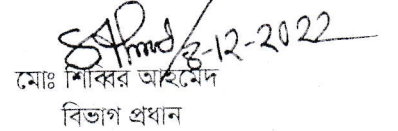 SAhmd 8-12-2022
মোঃ শিব্বির আহমেদ
বিভাগ প্রধান